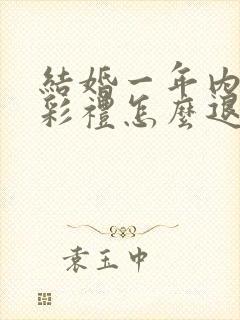 結婚一年内
彩禮怎麼退
袁玉中